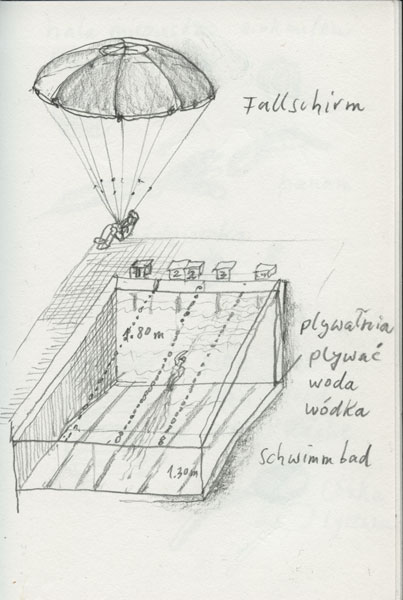 Fallschirm
2
1.80 m
plywałnia
plywać
woda
wódka
Schwimmbad
1.30 m